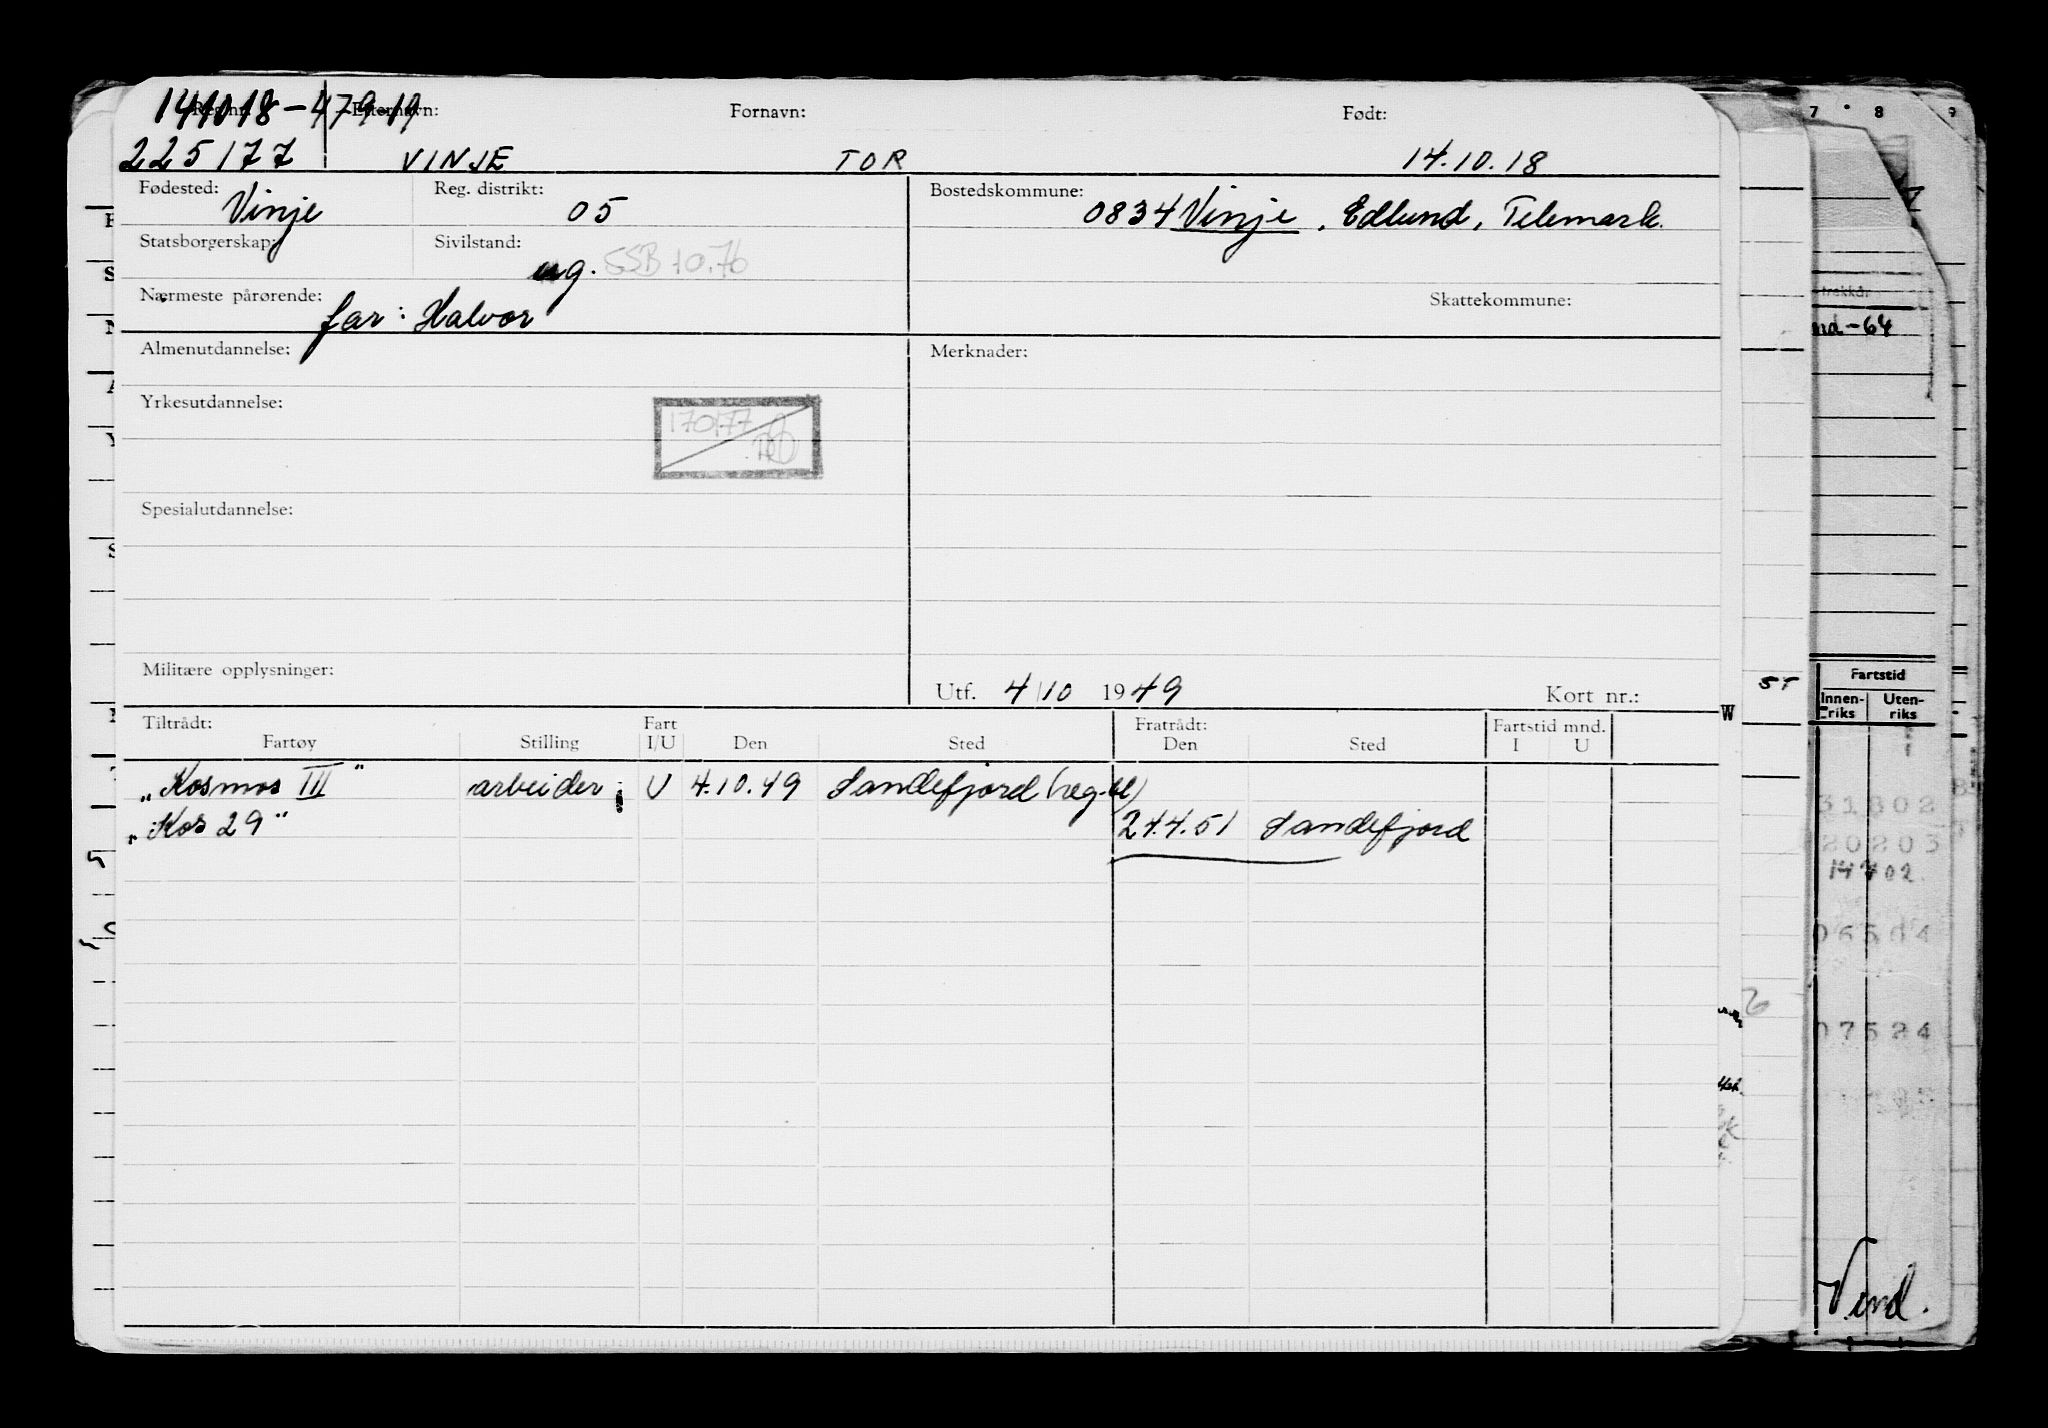 141018-47919
Reg.nr. Etternavn: Fornavn: Født:
225177 VINJE TOR 14.10.18
Fødested: Vinje Reg. distrikt: 05 Bostedskommune: 0834 Vinje, Edlund, Telemark.
Statsborgerskap: Sivilstand: ug. SSB 10.76
Nærmeste pårørende: far: Halvor Skattekommune:
Almenutdannelse: Merknader:
Yrkesutdannelse:
170177
Spesialutdannelse:
Militære opplysninger: Utf. 4/10 1949 Kort nr.:
Tiltrådt: Fart Fratrådt: Fartstid mnd.
Fartøy Stilling I/U Den Sted Den Sted I U
"Kosmos III" arbeider U 4.10.49 Sandefjord (reg.bl)
"Kos 29" 24.4.51 Sandefjord
7 8 9
nd-64
ST
W
Fartstid
Innen-riks Uten-riks
31802
20203
14702
06504
07524
Vend.